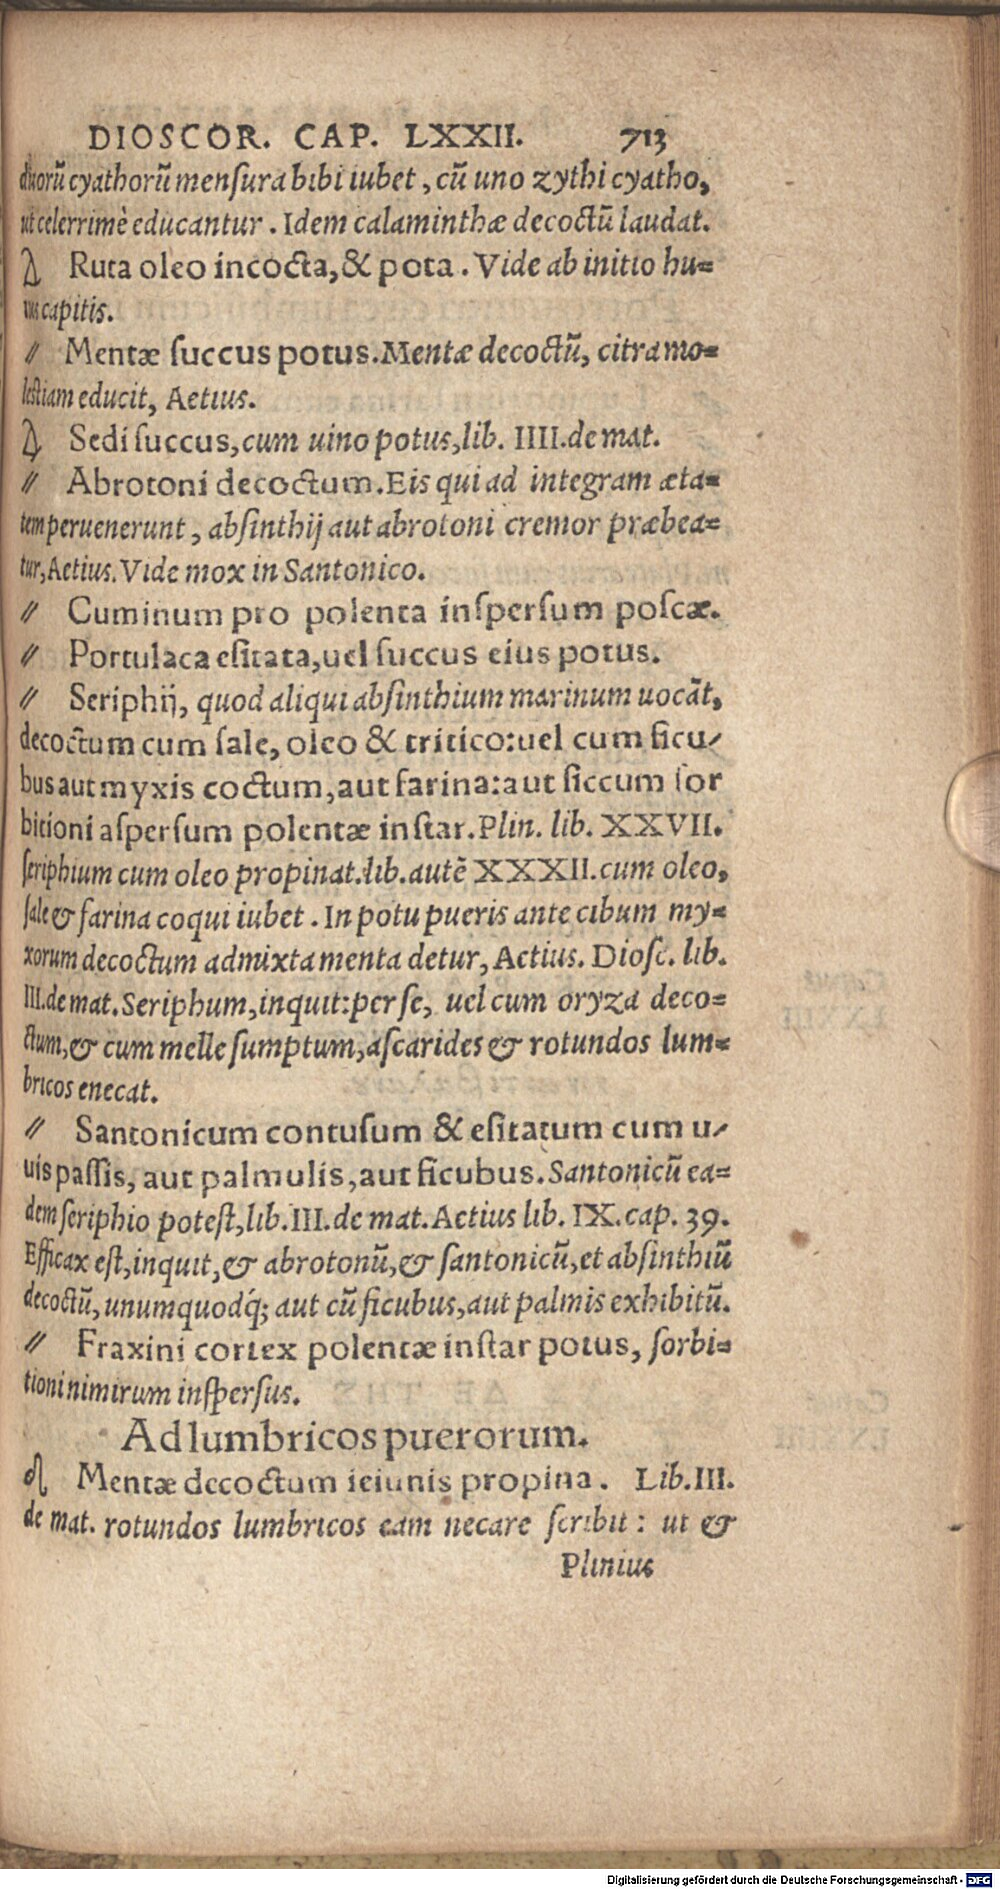 DIOSCOR. CAP. LXXII. 713
duorũ cyathorũ mensura bibi iubet, cũ uno zythi cyatho,
ut celerrimè educantur. Idem calaminthæ decoctũ laudat.
Ruta oleo incocta, & pota. Vide ab initio hu=
ius capitis.
〃 Mentæ succus potus. Mentæ decoctũ, citra mo=
lestiam educit, Aetius.
Sedi succus, cum uino potus, lib. IIII. de mat.
〃 Abrotoni decoctum. Eis qui ad integram æta=
tem peruenerunt, absinthij aut abrotoni cremor præbea=
tur, Aetius. Vide mox in Santonico.
〃 Cuminum pro polenta inspersum poscæ.
〃 Portulaca esitata, uel succus eius potus.
〃 Seriphij, quod aliqui absinthium marinum uocãt,
decoctum cum sale, oleo & tritico: uel cum ficu-
bus aut myxis coctum, aut farina: aut siccum sor
bitioni aspersum polentæ instar. Plin. lib. XXVII.
seriphium cum oleo propinat. lib. autẽ XXXII. cum oleo,
sale & farina coqui iubet. In potu pueris ante cibum my=
xorum decoctum admixta menta detur, Aetius. Diosc. lib.
III. de mat. Seriphum, inquit: per se, uel cum oryza deco=
ctum, & cum melle sumptum, ascarides & rotundos lum=
bricos enecat.
〃 Santonicum contusum & esitatum cum u-
uis passis, aut palmulis, aut ficubus. Santonicũ ea=
dem seriphio potest, lib. III. de mat. Aetius lib. IX. cap. 39.
Efficax est, inquit, & abrotonũ, & santonicũ, et absinthiũ
decoctũ, unumquodq́; aut cũ ficubus, aut palmis exhibitũ.
〃 Fraxini cortex polentæ instar potus, sorbi=
tioni nimirum inspersus.
Ad lumbricos puerorum.
Mentæ decoctum ieiunis propina. Lib. III.
de mat. rotundos lumbricos eam necare scribit: ut &
Plinius
Digitalisierung gefördert durch die Deutsche Forschungsgemeinschaft - DFG